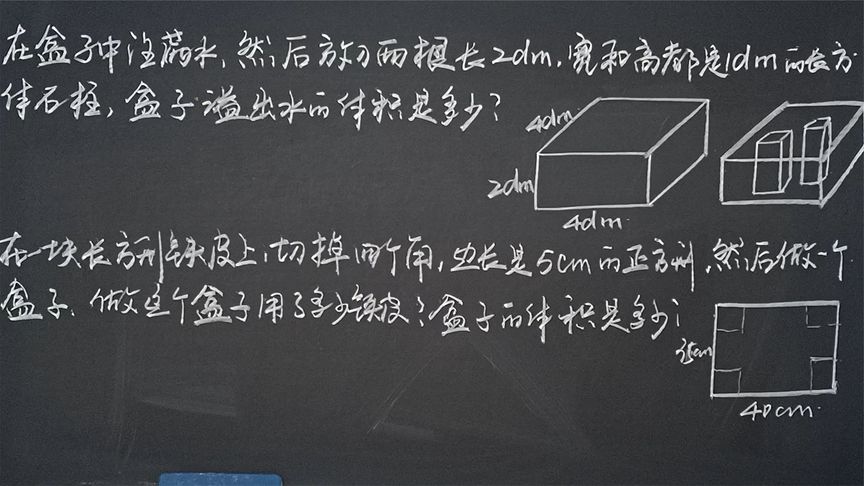 在盒子中注满水，然后放入两根长2dm，宽和高都是1dm的长方
体石柱，盒子溢出水的体积是多少？
4dm
2dm
4dm
在一块长方形铁皮上，切掉四个角，边长是5cm的正方形，然后做一个
盒子，做这个盒子用了多少铁皮？盒子的体积是多少？
40cm